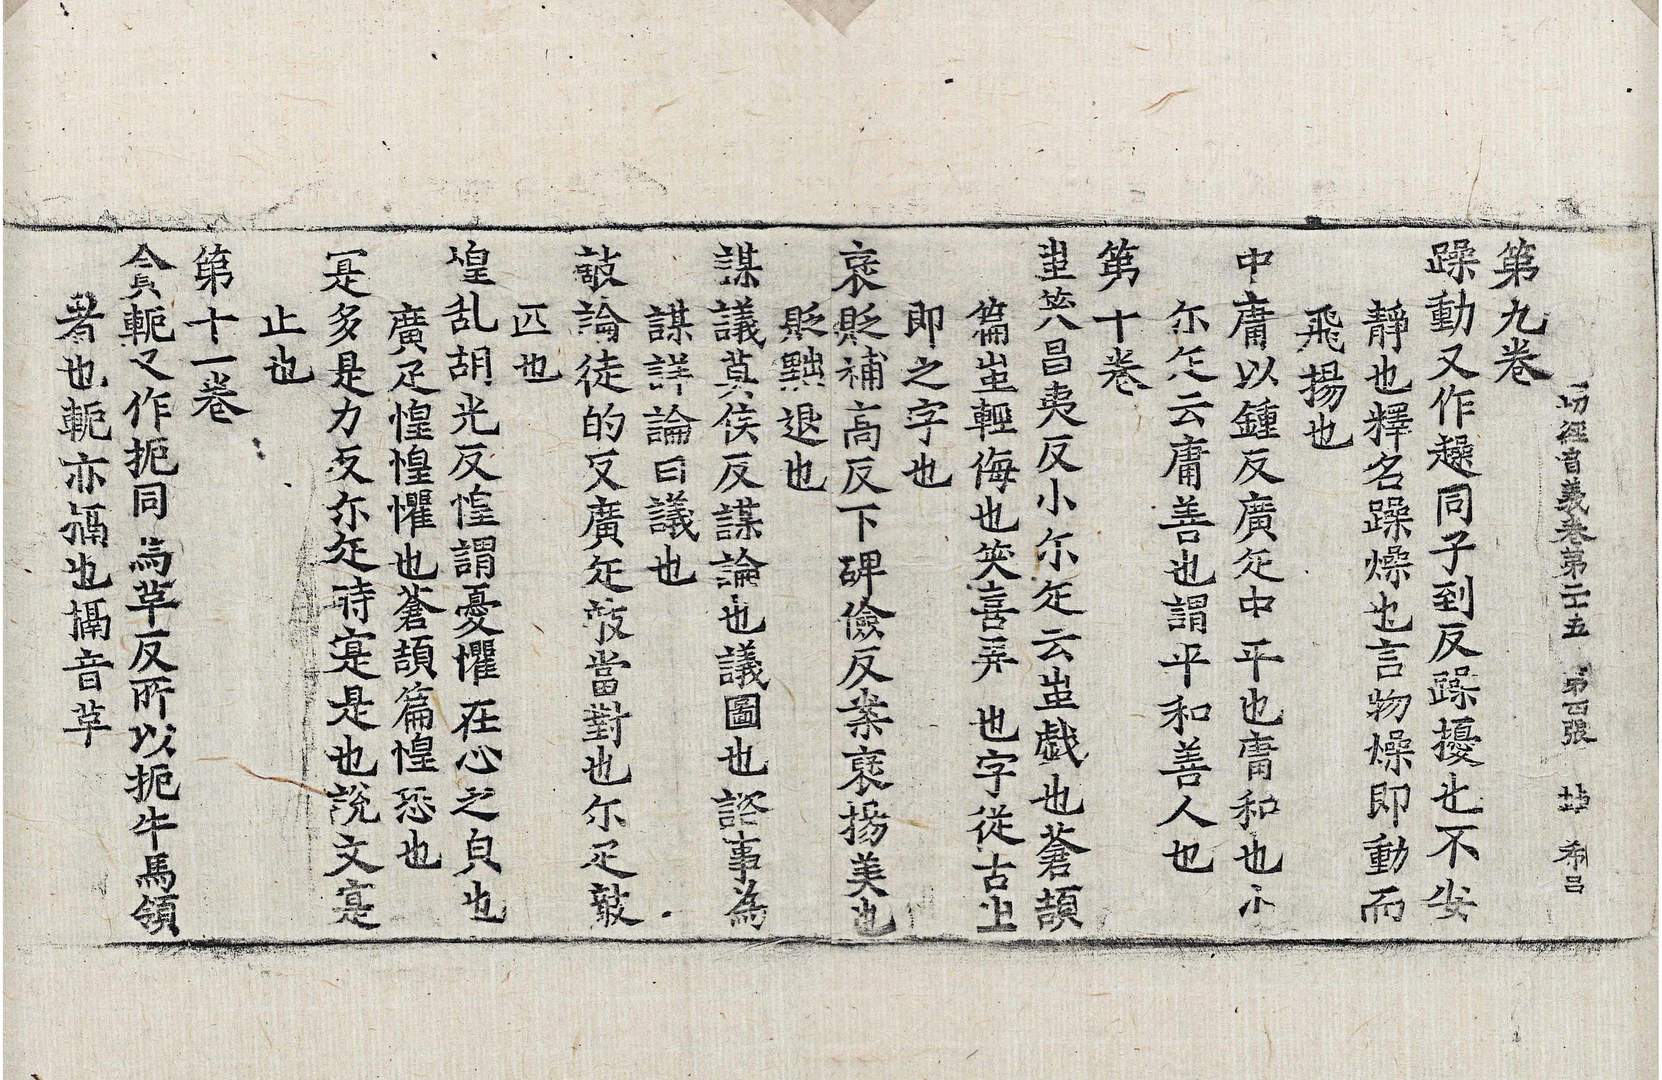 一切經音義卷第二十五 第四張 堆 希呂
第九卷
躁動又作趮同子到反躁擾也不安
靜也釋名躁燥也言物燥即動而
飛揚也
中庸以鍾反廣疋中平也庸和也小
尒疋云庸善也謂平和善人也
第十卷
蚩笑昌夷反小尒疋云蚩戯也蒼頡
篇蚩輕侮也笑喜弄也字從古㞢
即之字也
褒貶補高反下碑儉反案褒揚美也
貶黜退也
謀議莫侯反謀論也議圖也諮事為
謀詳論曰議也
敵論徒的反廣疋敵當對也尒疋敵
匹也
惶亂胡光反惶謂憂懼在心之皃也
廣疋惶惶懼也蒼頡篇惶恐也
寔多是力反尒疋時寔是也說文寔
止也
第十一卷
貪軛又作扼同烏革反所以扼牛馬領
者也軛亦槅也槅音革